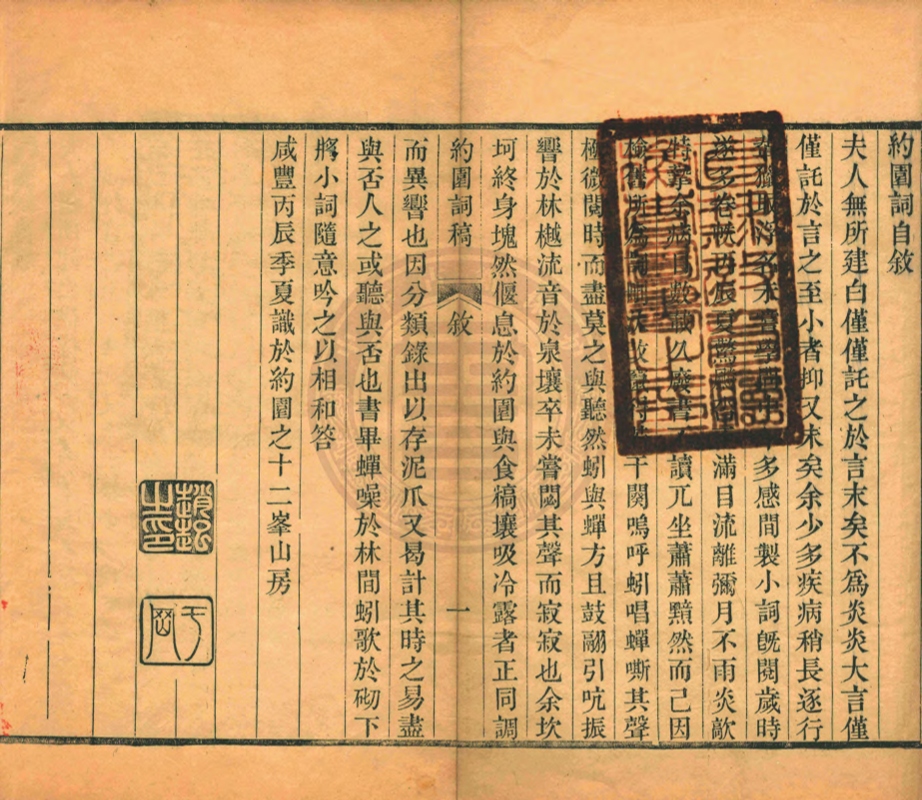 約園詞自敘
夫人無所建白僅僅託之於言末矣不爲炎炎大言僅
僅託於言之至小者抑又末矣余少多疾病稍長逐行
取浮名未多感間製小詞旣閱歲時
遂多卷帙丙辰夏滿目流離彌月不雨炎歊
特摯余病目數載久廢書不讀兀坐蕭蕭黯然而已因
檢舊所爲干闋嗚呼蚓唱蟬嘶其聲
極微閱時而盡莫之與聽然蚓與蟬方且鼓翮引吭振
響於林樾流音於泉壤卒未嘗閟其聲而寂寂也余坎
坷終身塊然偃息於約園與食槁壤吸冷露者正同調
約園詞稿 敘 一
而異響也因分類錄出以存泥爪又曷計其時之易盡
與否人之或聽與否也書畢蟬噪於林間蚓歌於砌下
將小詞隨意吟之以相和答
咸豐丙辰季夏識於約園之十二峯山房
趙起之印
于岡